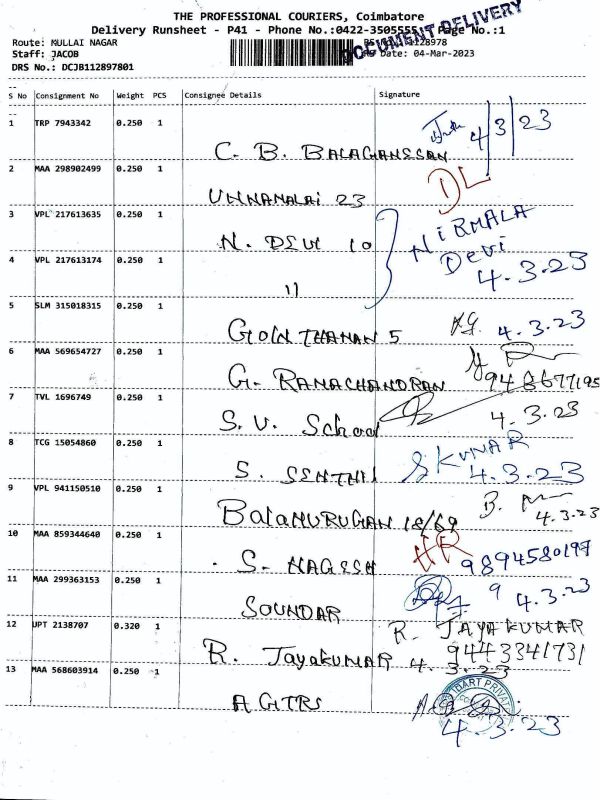 THE PROFESSIONAL COURIERS, Coimbatore
Delivery Runsheet - P41 - Phone No.:0422-3505555, Page No.:1
DOCUMENT DELIVERY
Route: KULLAI NAGAR
Staff: JACOB Date: 04-Mar-2023
DRS No.: DCJB112897801
S No Consignment No Weight PCS Consignee Details Signature
1 TRP 7943342 0.250 1 4/3/23
C. B. BALAGANSSAN
2 MAA 298902499 0.250 1 DL
UNNAMALAi 23
3 VPL 217613635 0.250 1 NiRMALA
N. DEVI 10 Devi
4 VPL 217613174 0.250 1 4.3.23
11
5 SLM 315018315 0.250 1 4.3.23
THANAN 5
6 MAA 569654727 0.250 1
G. RAMACHANDRAN 948677195
7 TVL 1696749 0.250 1 4.3.23
S. V. School
8 TCG 15054860 0.250 1 S KUMAR
S. SENTHIL 4.3.23
9 VPL 941150510 0.250 1 B.
BalaMURUGAN 18/69 4.3.23
10 MAA 859344640 0.250 1 HR
S. NAGESH 9894580197
11 MAA 299363153 0.250 1 4.3.23
SOUNDAR
12 UPT 2138707 0.320 1 R. JAYAKUMAR
9443341731
R. Jayakumar 4.3.23
13 MAA 568603914 0.250 1
4.3.23